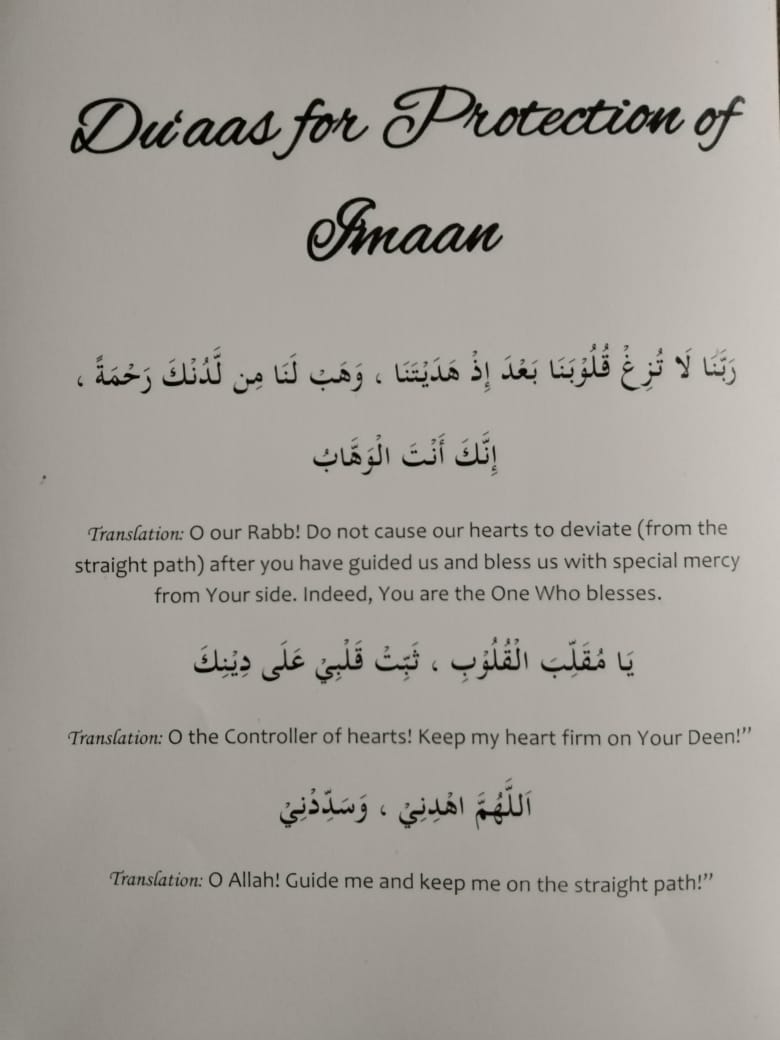 Du'aas for Protection of
Imaan
رَبَّنَا لَا تُزِغْ قُلُوْبَنَا بَعْدَ إِذْ هَدَيْتَنَا ، وَهَبْ لَنَا مِن لَّدُنْكَ رَحْمَةً ،
إِنَّكَ أَنْتَ الْوَهَّابُ
Translation: O our Rabb! Do not cause our hearts to deviate (from the
straight path) after you have guided us and bless us with special mercy
from Your side. Indeed, You are the One Who blesses.
يَا مُقَلِّبَ الْقُلُوْبِ ، ثَبِّتْ قَلْبِيْ عَلَى دِيْنِكَ
Translation: O the Controller of hearts! Keep my heart firm on Your Deen!”
اَللَّهُمَّ اهْدِنِيْ ، وَسَدِّدْنِيْ
Translation: O Allah! Guide me and keep me on the straight path!”